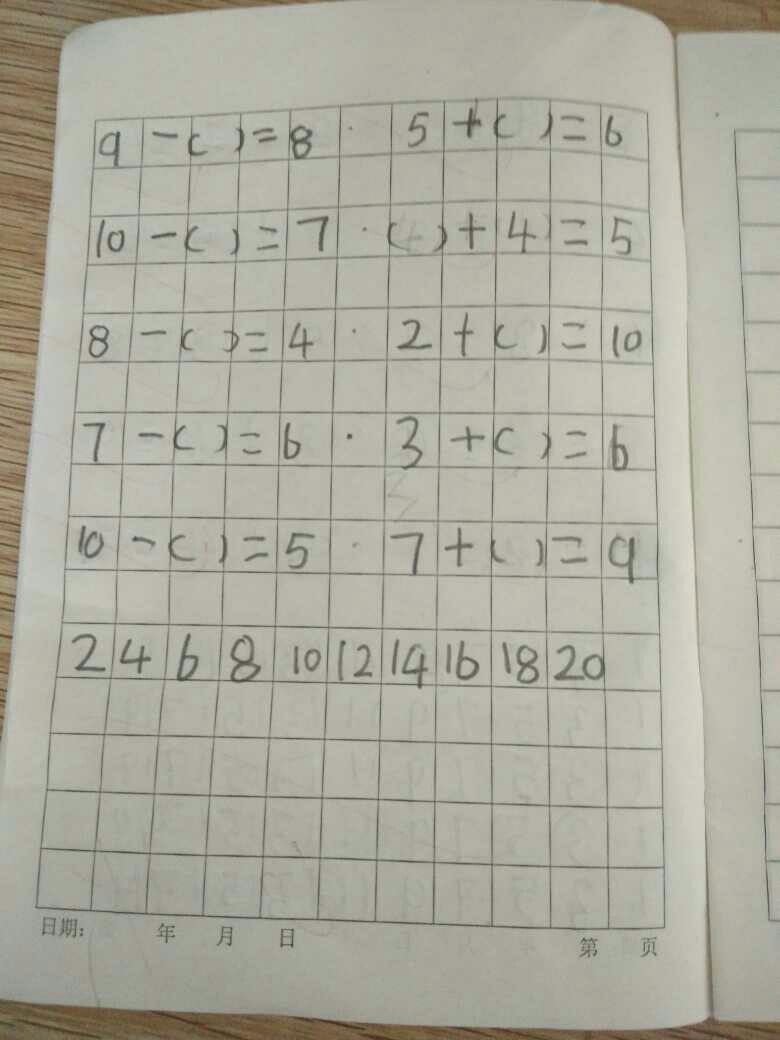 9 - ( ) = 8 · 5 + ( ) = 6
10 - ( ) = 7 · ( ) + 4 = 5
8 - ( ) = 4 · 2 + ( ) = 10
7 - ( ) = 6 · 3 + ( ) = 6
10 - ( ) = 5 · 7 + ( ) = 9
2 4 6 8 10 12 14 16 18 20
日期: 年 月 日 第 页